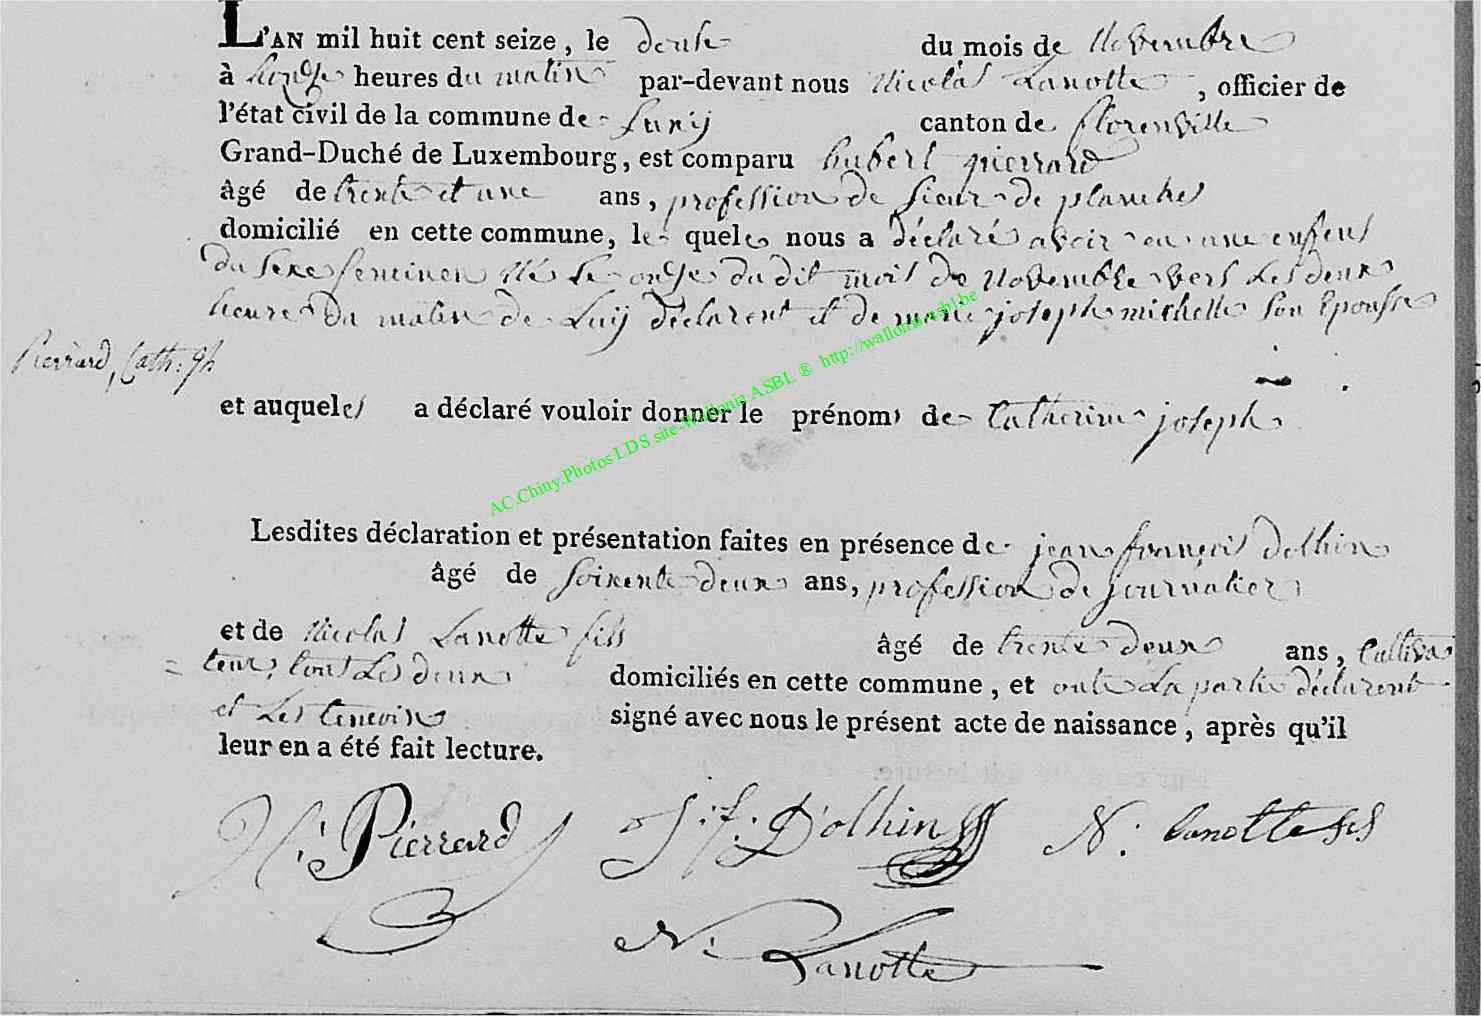 L'AN mil huit cent seize, le douse du mois de Novembre
à honze heures du matin par-devant nous Nicolas Lanotte, officier de
l'état civil de la commune de Suxÿ canton de florenville
Grand-Duché de Luxembourg, est comparu hubert pierrard
âgé de trente et une ans, profession de sieur de planches
domicilié en cette commune, le quele nous a déclaré avoir eu une enfens
du sexe femeinen né le onze du dit mois de Novembre vers les deux
heures du matin de Luij déclarent et de marie joseph michelle son Epousse
Pierrard, Cath: Jph
et auqueles a déclaré vouloir donner le prénoms de Catherine joseph
AC.Chiny.Photos LDS site-Wallonia ASBL ® http://wallonia-asbl.be
Lesdites déclaration et présentation faites en présence de jean françois dolhin
âgé de soixente deux ans, profession de journalier
et de Nicolas Lanotte fils âgé de trente deux ans, Cultiva
= teur, tout les deux domiciliés en cette commune, et onte La partie déclarent
et Les temoins signé avec nous le présent acte de naissance, après qu'il
leur en a été fait lecture.
H: Pierrard J: f: D'olhin N: Lanotte fils
N: Lanotte